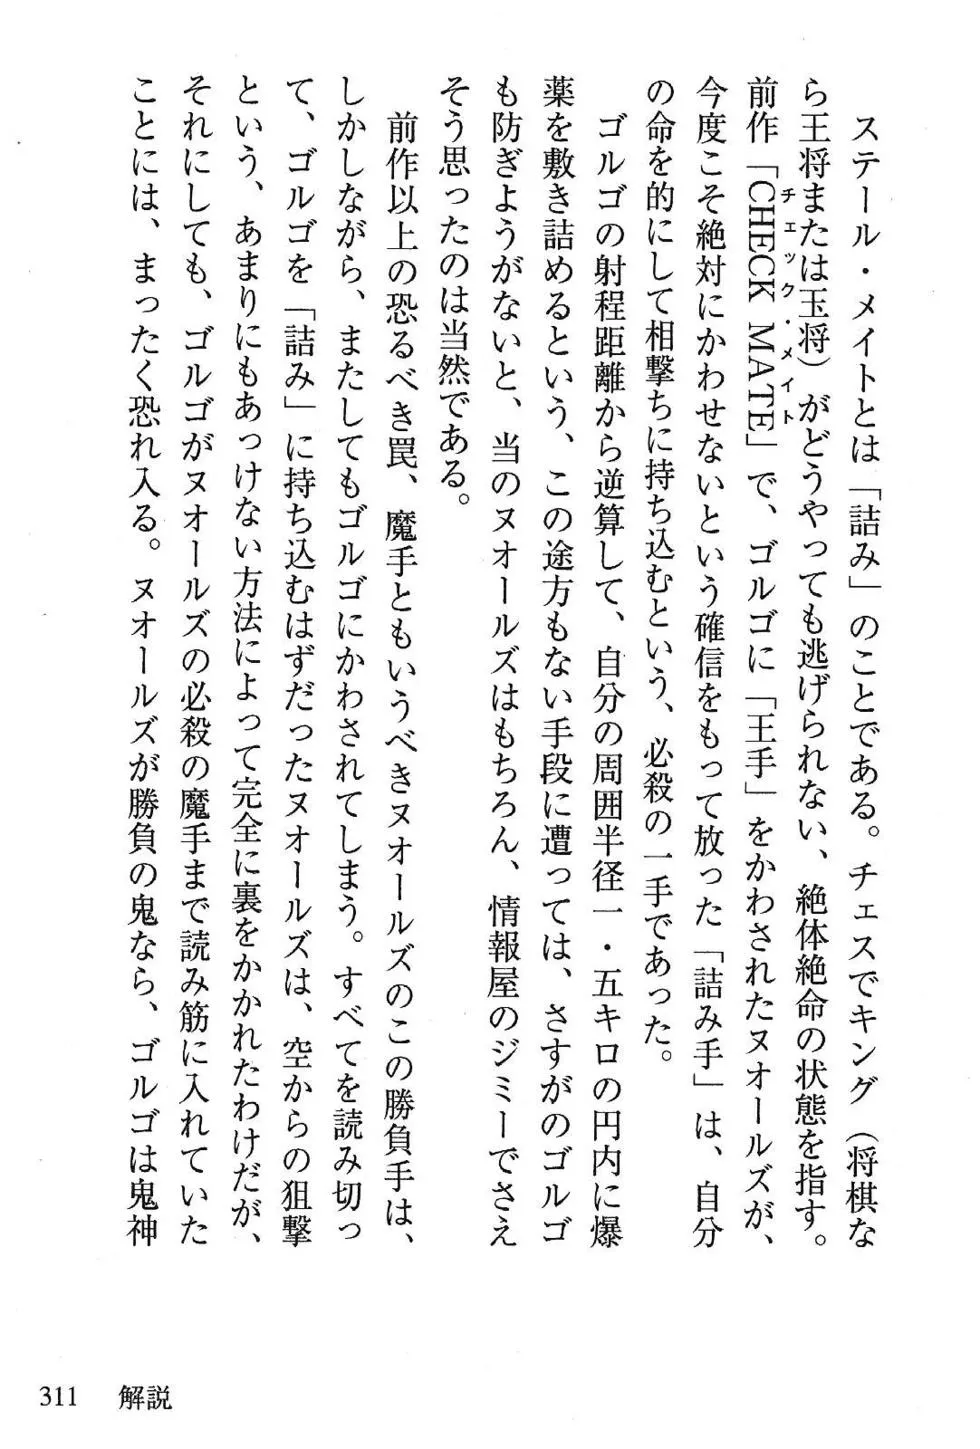 ステール・メイトとは「詰み」のことである。チェスでキング（将棋な
ら王将または玉将）がどうやっても逃げられない、絶体絶命の状態を指す。
前作「CHECK MATE」で、ゴルゴに「王手」をかわされたヌオールズが、
チェック・メイト
今度こそ絶対にかわせないという確信をもって放った「詰み手」は、自分
の命を的にして相撃ちに持ち込むという、必殺の一手であった。
ゴルゴの射程距離から逆算して、自分の周囲半径一・五キロの円内に爆
薬を敷き詰めるという、この途方もない手段に遭っては、さすがのゴルゴ
も防ぎようがないと、当のヌオールズはもちろん、情報屋のジミーでさえ
そう思ったのは当然である。
前作以上の恐るべき罠、魔手ともいうべきヌオールズのこの勝負手は、
しかしながら、またしてもゴルゴにかわされてしまう。すべてを読み切っ
て、ゴルゴを「詰み」に持ち込むはずだったヌオールズは、空からの狙撃
という、あまりにもあっけない方法によって完全に裏をかかれたわけだが、
それにしても、ゴルゴがヌオールズの必殺の魔手まで読み筋に入れていた
ことには、まったく恐れ入る。ヌオールズが勝負の鬼なら、ゴルゴは鬼神
311 解説